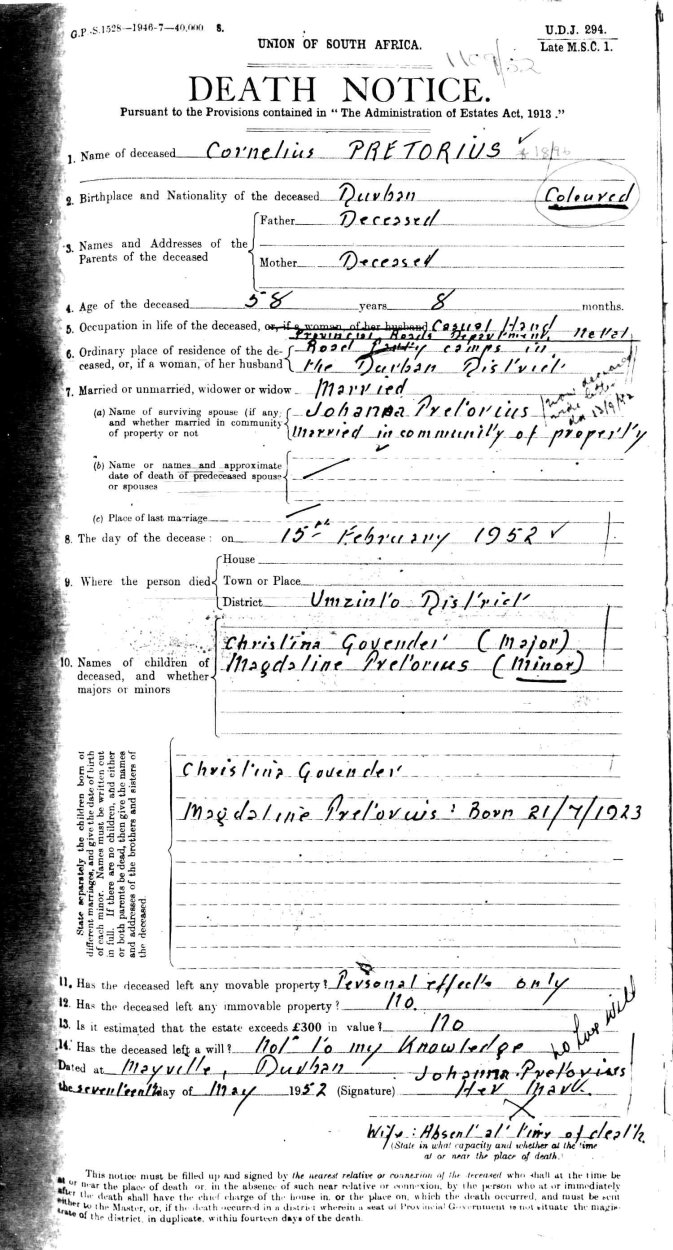 G.P.-S.1528—1946-7—40,000 S.
U.D.J. 294.
Late M.S.C. 1.
UNION OF SOUTH AFRICA.
1109/52
DEATH NOTICE.
Pursuant to the Provisions contained in "The Administration of Estates Act, 1913."
1. Name of deceased Cornelius PRETORIUS
2. Birthplace and Nationality of the deceased Durban Coloured
3. Names and Addresses of the Parents of the deceased
Father Deceased
Mother Deceased
4. Age of the deceased 58 years 8 months.
5. Occupation in life of the deceased, or, if a woman, of her husband Casual Hand
Provincial Roads Department, Natal
6. Ordinary place of residence of the deceased, or, if a woman, of her husband
Road Party camps in
the Durban District
7. Married or unmarried, widower or widow Married
(a) Name of surviving spouse (if any) and whether married in community of property or not
Johanna Pretorius
Married in community of property
(b) Name or names and approximate date of death of predeceased spouse or spouses
(c) Place of last marriage
8. The day of the decease: on 15th February 1952
9. Where the person died
House
Town or Place
District Umzinto District
10. Names of children of deceased, and whether majors or minors
Christina Govender (Major)
Magdaline Pretorius (Minor)
State separately the children born of
different marriages, and give the date of birth
of each minor. Names must be written out
in full. If there are no children, and either
or both parents be dead, then give the names
and addresses of the brothers and sisters of
the deceased.
Christina Govender
Magdaline Pretorius : Born 21/7/1923
11. Has the deceased left any movable property? Personal effects only
12. Has the deceased left any immovable property? No.
13. Is it estimated that the estate exceeds £300 in value? No
14. Has the deceased left a will? Not to my Knowledge
Dated at Mayville, Durban Johanna Pretorius
the seventeenth day of May 1952 (Signature) Her Mark.
X
Wife: Absent at time of death.
(State in what capacity and whether at the time
at or near the place of death.)
This notice must be filled up and signed by the nearest relative or connexion of the deceased who shall at the time be
at or near the place of death or, in the absence of such near relative or connexion, by the person who at or immediately
after the death shall have the chief charge of the house in, or the place on, which the death occurred, and must be sent
either to the Master, or, if the death occurred in a district wherein a seat of Provincial Government is not situate the magis-
trate of the district, in duplicate, within fourteen days of the death.